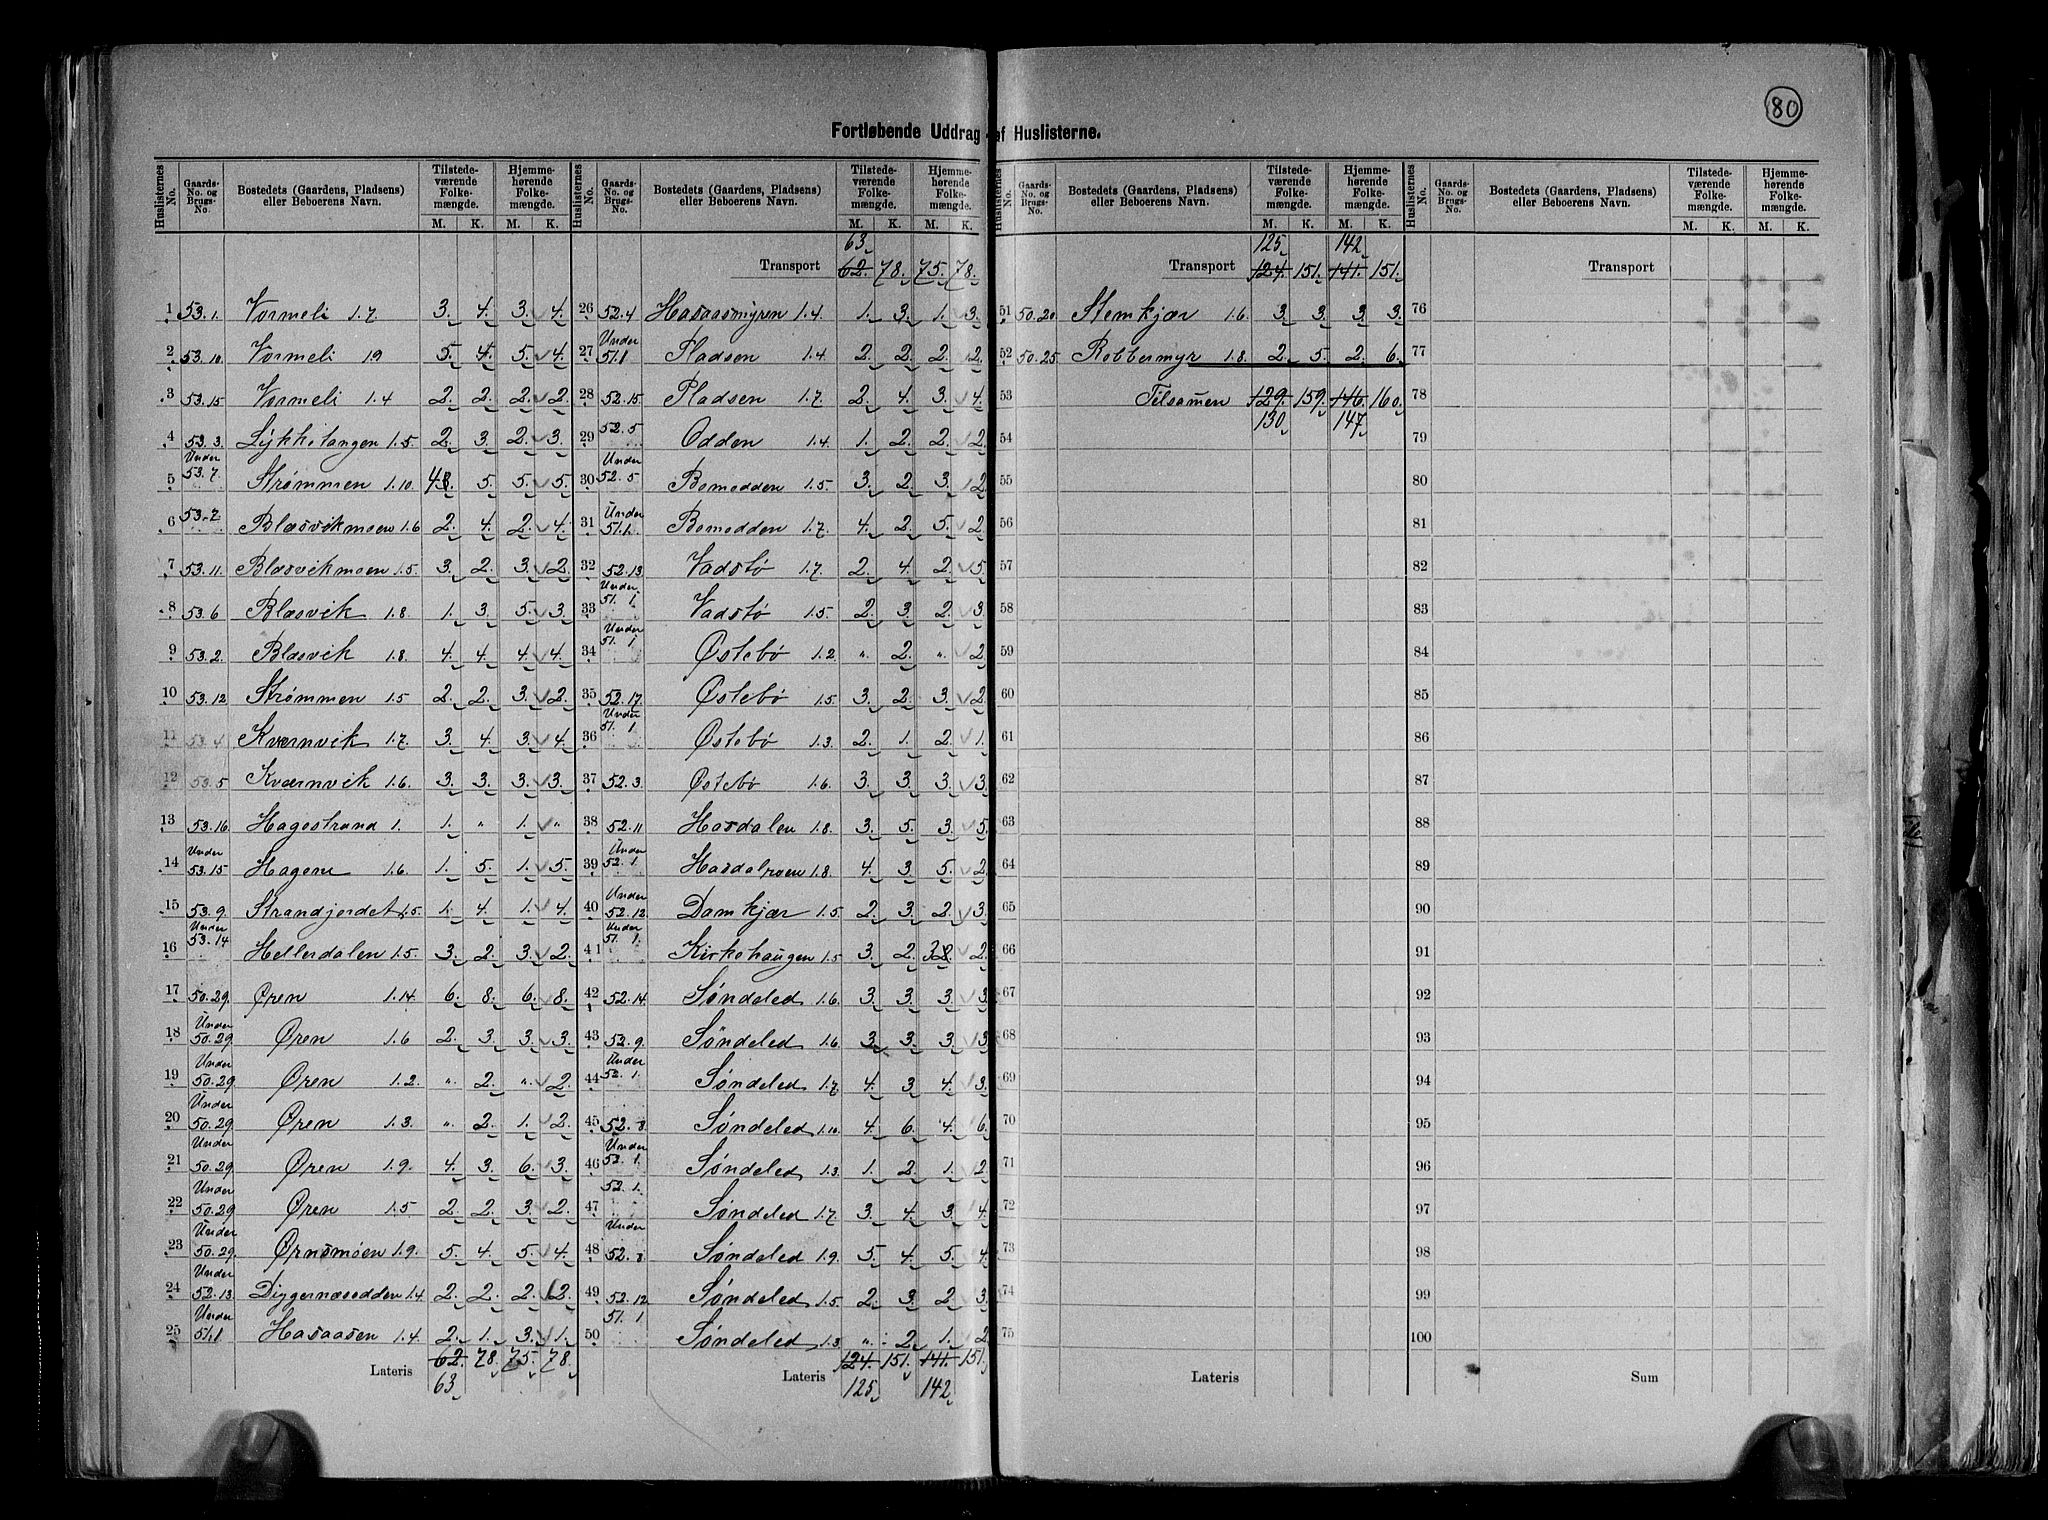 80
Fortløbende Uddrag af Huslisterne.
Huslisternes No. | Gaards-No. og Brugs-No. | Bostedets (Gaardens, Pladsens) eller Beboerens Navn. | Tilstedeværende Folkemængde. M. K. | Hjemmehørende Folkemængde. M. K.
1 53.1. Vormeli 1.7. 3. 4. 3. 4.
2 53.10. Vormeli 1.9 5. 4. 5. 4.
3 53.15 Vormeli 1.4 2. 2. 2. 2.
4 53.3. Lykketangen 1.5. 2. 3. 2. 3.
5 Under 53.7. Strømmen 1.10. 4. 5. 5. 5.
6 53.7. Blæsvikmoen 1.6 2. 4. 2. 4.
7 53.11. Blæsvikmoen 1.5. 3. 2. 3. 2.
8 53.6 Blæsvik 1.8. 1. 3. 5. 3.
9 53.2. Blæsvik 1.8. 4. 4. 4. 4.
10 53.12 Strømmen 1.5 2. 2. 3. 2.
11 53.4 Kvernvik 1.7. 3. 4. 3. 4.
12 53.5 Kværnvik 1.6. 3. 3. 3. 3.
13 53.16. Hagestrand 1. 1. " 1. "
14 Under 53.15 Hagene 1.6. 1. 5. 1. 5.
15 53.9. Strandjordet 1.5. 1. 4. 1. 4.
16 Under 53.14 Hellerdalen 1.5. 3. 2. 3. 2.
17 50.29. Øren 1.14. 6. 8. 6. 8.
18 Under 50.29. Øren 1.6 2. 3. 3. 3.
19 Under 50.29. Øren 1.2. " 2. " 2.
20 Under 50.29. Øren 1.3. " 2. 1. 2.
21 Under 50.29. Øren 1.9. 4. 3. 6. 3.
22 Under 50.29 Øren 1.5 2. 2. 3. 2.
23 Under 50.29. Ørnsmoen 1.9. 5. 4. 5. 4.
24 Under 52.13. Diggernæsodden 1.4. 2. 2. 2. 2.
25 Under 51.1 Hasaasen 1.4. 2. 1. 3. 1.
Lateris 62. 78. 75. 78.
63
Huslisternes No. | Gaards-No. og Brugs-No. | Bostedets (Gaardens, Pladsens) eller Beboerens Navn. | Tilstedeværende Folkemængde. M. K. | Hjemmehørende Folkemængde. M. K.
63
Transport 62. 78. 75. 78.
26 52.4 Hasaasmyren 1.4. 1. 3. 1. 3.
27 Under 51.1 Pladsen 1.4. 2. 2. 2. 2.
28 52.15 Pladsen 1.7. 2. 4. 3. 4.
29 52.5 Odden 1.4. 1. 2. 2. 2.
30 Under 52.5 Bomodden 1.5. 3. 2. 3. 2.
31 Under 51.1. Bomodden 1.7. 4. 2. 5. 2.
32 52.13. Vadstø 1.7. 2. 4. 2. 5.
33 Under 51.1. Vadstø 1.5. 2. 3. 2. 3.
34 Under 51.1 Østebø 1.2. " 2. " 2.
35 52.17. Østebø 1.5. 3. 2. 3. 2.
36 Under 51.1. Østebø 1.3. 2. 1. 2. 1.
37 52.3. Østebø 1.6. 3. 3. 3. 3.
38 52.11 Hasdalen 1.8. 3. 5. 3. 5.
39 Under 52.1. Hasdalmoen 1.8. 4. 3. 5. 2.
40 Under 52.12. Damkjær 1.5. 2. 3. 2. 3.
41 Under 51.1. Kirkehaugen 1.5 3. 2. 3 2.
42 52.14. Søndeled 1.6. 3. 3. 3. 3.
43 52.9. Søndeled 1.6. 3. 3. 3. 3.
44 Under 52.1. Søndeled 1.7. 4. 3. 4. 3.
45 52.8. Søndeled 1.10. 4. 6. 4. 6.
46 Under 52.1. Søndeled 1.3. 1. 2. 1. 2.
47 52.1. Søndeled 1.7. 3. 4. 3. 4.
48 Under 52.8. Søndeled 1.9. 5. 4. 5. 4.
49 52.12 Søndeled 1.5. 2. 3. 2. 3.
50 51.1 Søndeled 1.3. " 2. 1. 2.
Lateris 124. 151. 141. 151.
125 142
Huslisternes No. | Gaards-No. og Brugs-No. | Bostedets (Gaardens, Pladsens) eller Beboerens Navn. | Tilstedeværende Folkemængde. M. K. | Hjemmehørende Folkemængde. M. K.
125 142
Transport 124. 151. 141. 151.
51 50.20. Stemkjær 1.6. 3. 3. 3. 3.
52 50.25 Robbermyr 1.8. 2. 5. 2. 6.
53 Tilsamen 129. 159. 146. 160.
130 147
54
55
56
57
58
59
60
61
62
63
64
65
66
67
68
69
70
71
72
73
74
75
Lateris
Huslisternes No. | Gaards-No. og Brugs-No. | Bostedets (Gaardens, Pladsens) eller Beboerens Navn. | Tilstedeværende Folkemængde. M. K. | Hjemmehørende Folkemængde. M. K.
Transport
76
77
78
79
80
81
82
83
84
85
86
87
88
89
90
91
92
93
94
95
96
97
98
99
100
Sum